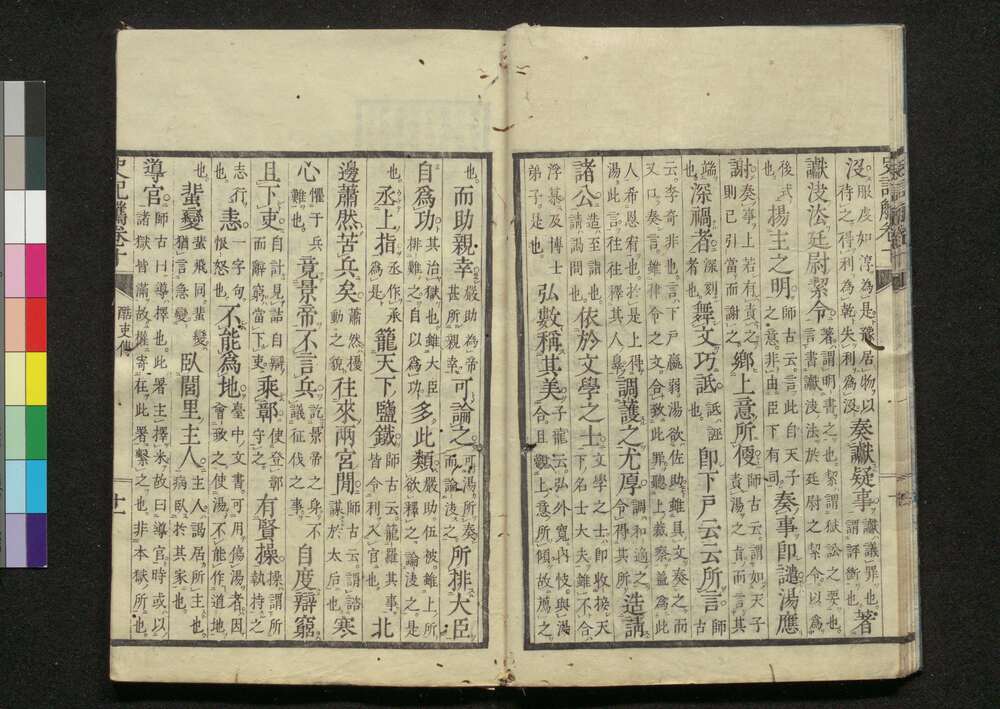 沒服度如淳為是豫居物以待之得利為乾失利為沒奏讞疑事讞議罪也謂評斷也著
讞决法廷尉絜令著謂明書之也絜謂獄訟之要也言書讞决法於廷尉之絜令以為
後式也揚主之明師古云言此自天子之意非由臣下有司奏事即譴湯應
謝奏事上若有責之則已引當而謝之鄉上意所便師古云謂如天子責湯之言而言其
端也深禍者深刻者也舞文巧詆詆誣也即下戸云云所言師古
云李奇非也言下戸羸弱湯欲佐助雖具文奏之而又口奏言雖律令之文合致此罪聽上裁察益為此
人希恩宥也於是上得湯此言往往釋其人辠調護之尤厚調和適之令得其所造請
諸公造至諸也請謁問也依於文學之士文學之士即收接天下名士大夫雖不合
浮慕及博士弟子是也弘數稱其美子龍云弘外寬內忮與湯合且觀上意所傾故薦之
也而助親幸嚴助為帝甚所親幸可論之可湯所奏而論决之所排大臣
自為功其治獄也雖大臣排雖之自以為功多此類嚴助伍被雖上所欲釋之論决之是
也丞上指丞作承為是籠天下鹽鐵師古云龍羅其事皆令利入官也北
邊蕭然苦兵矣蕭然擾動之貌往來兩宮閒師古云謂諮謀於太后也寒
心懼于兵難也竟景帝不言兵訖景帝之身不議征伐之事自度辯窮
且下吏自計見詰自辯而辭窮當下吏乘鄣使登鄣守之有賢操操謂所執持之
志行也恚一字句恨怒也不能為地臺中文書可用傷湯者因會致之使湯不能作道地
也蜚變蜚飛同蜚變猶言急變臥閭里主人主人謁居所主人也病臥於其家也
導官師古曰導擇也此署主擇米故曰導官時或以諸獄皆滿故權寄在此署繫之也非本獄所也
史記觿卷十 酷吏傳 廿一